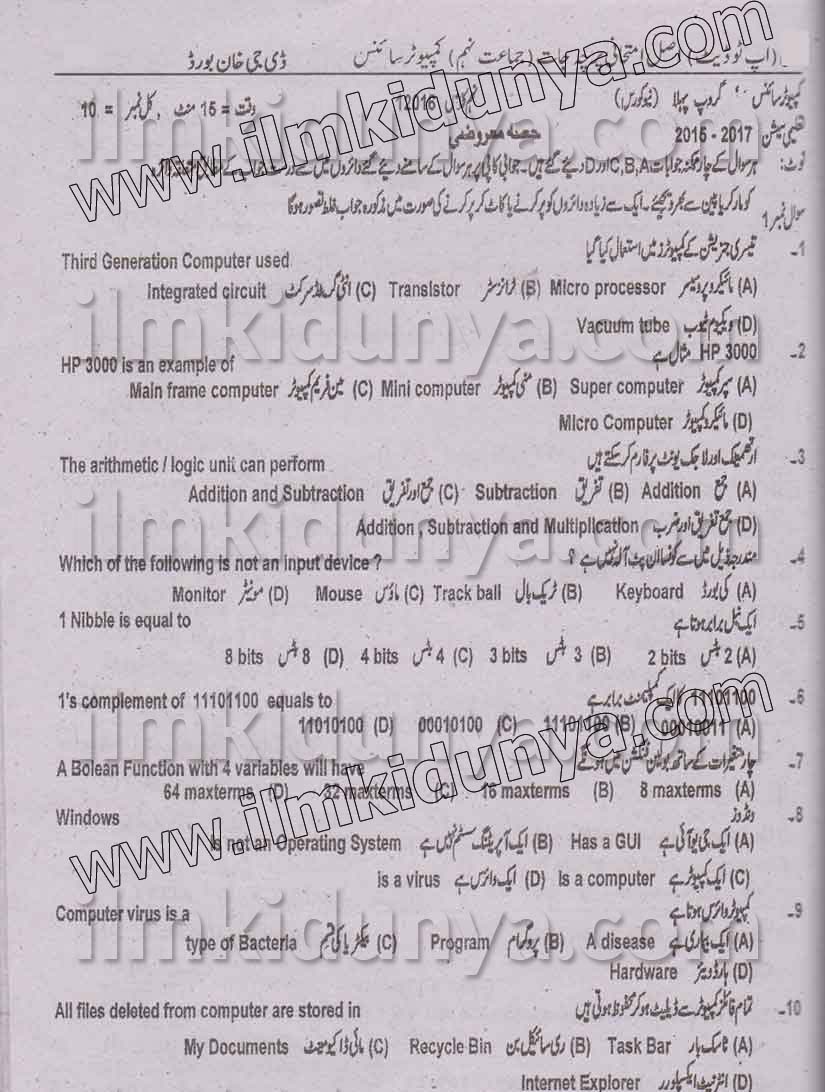 (اپ ٹو ڈیٹ) امتحانی پرچہ جات (جماعت نہم) کمپیوٹر سائنس ڈی جی خان بورڈ
کمپیوٹر سائنس گروپ پہلا (نیو کورس) 2016 وقت = 15 منٹ , کل نمبر = 10
تعلیمی سیشن 2017 - 2015 حصہ معروضی
نوٹ: ہر سوال کے چار ممکنہ جوابات C,B,A اور D دیئے گئے ہیں۔ جوابی کاپی پر ہر سوال کے سامنے دیئے گئے دائروں میں سے درست جواب کے
کو مارکر یا پین سے بھر دیجئے۔ ایک سے زیادہ دائروں کو پر کرنے یا کاٹ کر پر کرنے کی صورت میں مذکورہ جواب غلط تصور ہوگا
سوال نمبر 1
1۔ تیسری جنریشن کے کمپیوٹرز میں استعمال کیا گیا Third Generation Computer used
(A) مائیکرو پروسیسر Micro processor (B) ٹرانزسٹر Transistor (C) انٹی گریٹڈ سرکٹ Integrated circuit
(D) ویکیوم ٹیوب Vacuum tube
2۔ HP 3000 مثال ہے HP 3000 is an example of
(A) سپر کمپیوٹر Super computer (B) منی کمپیوٹر Mini computer (C) مین فریم کمپیوٹر Main frame computer
(D) مائیکرو کمپیوٹر Micro Computer
3۔ ارتھمیٹک اور لاجک یونٹ پرفارم کر سکتے ہیں The arithmetic / logic unit can perform
(A) جمع Addition (B) تفریق Subtraction (C) جمع اور تفریق Addition and Subtraction
(D) جمع تفریق اور ضرب Addition , Subtraction and Multiplication
4۔ مندرجہ ذیل میں سے کونسا ان پٹ آلہ نہیں ہے ؟ Which of the following is not an input device ?
(A) کی بورڈ Keyboard (B) ٹریک بال Track ball (C) ماؤس Mouse (D) مونیٹر Monitor
5۔ ایک نبل برابر ہوتا ہے 1 Nibble is equal to
(A) 2 بٹس 2 bits (B) 3 بٹس 3 bits (C) 4 بٹس 4 bits (D) 8 بٹس 8 bits
6۔ 11101100 کا کمپلیمنٹ برابر ہے 1's complement of 11101100 equals to
(A) 00010011 (B) 11101100 (C) 00010100 (D) 11010100
7۔ چار متغیرات کے ساتھ بولین فنکشن میں ہونگے A Bolean Function with 4 variables will have
(A) 8 maxterms (B) 16 maxterms (C) 32 maxterms (D) 64 maxterms
8۔ ونڈوز Windows
(A) ایک جی یو آئی ہے Has a GUI (B) ایک آپریٹنگ سسٹم نہیں ہے is not an Operating System
(C) ایک کمپیوٹر ہے Is a computer (D) ایک وائرس ہے is a virus
9۔ کمپیوٹر وائرس ہوتا ہے Computer virus is a
(A) ایک بیماری ہے A disease (B) پروگرام Program (C) بیکٹیریا کی قسم type of Bacteria
(D) ہارڈ ویئر Hardware
10۔ تمام فائلز کمپیوٹر سے ڈیلیٹ ہو کر محفوظ ہوتی ہیں All files deleted from computer are stored in
(A) ٹاسک بار Task Bar (B) ری سائیکل بن Recycle Bin (C) مائی ڈاکیومینٹ My Documents
(D) انٹرنیٹ ایکسپلورر Internet Explorer
www.ilmkidunya.com
www.ilmkidunya.com
ilmkidunya.com
ilmkidunya.com
ilmkidunya.com
ilmkidunya.com
ilmkidunya.com